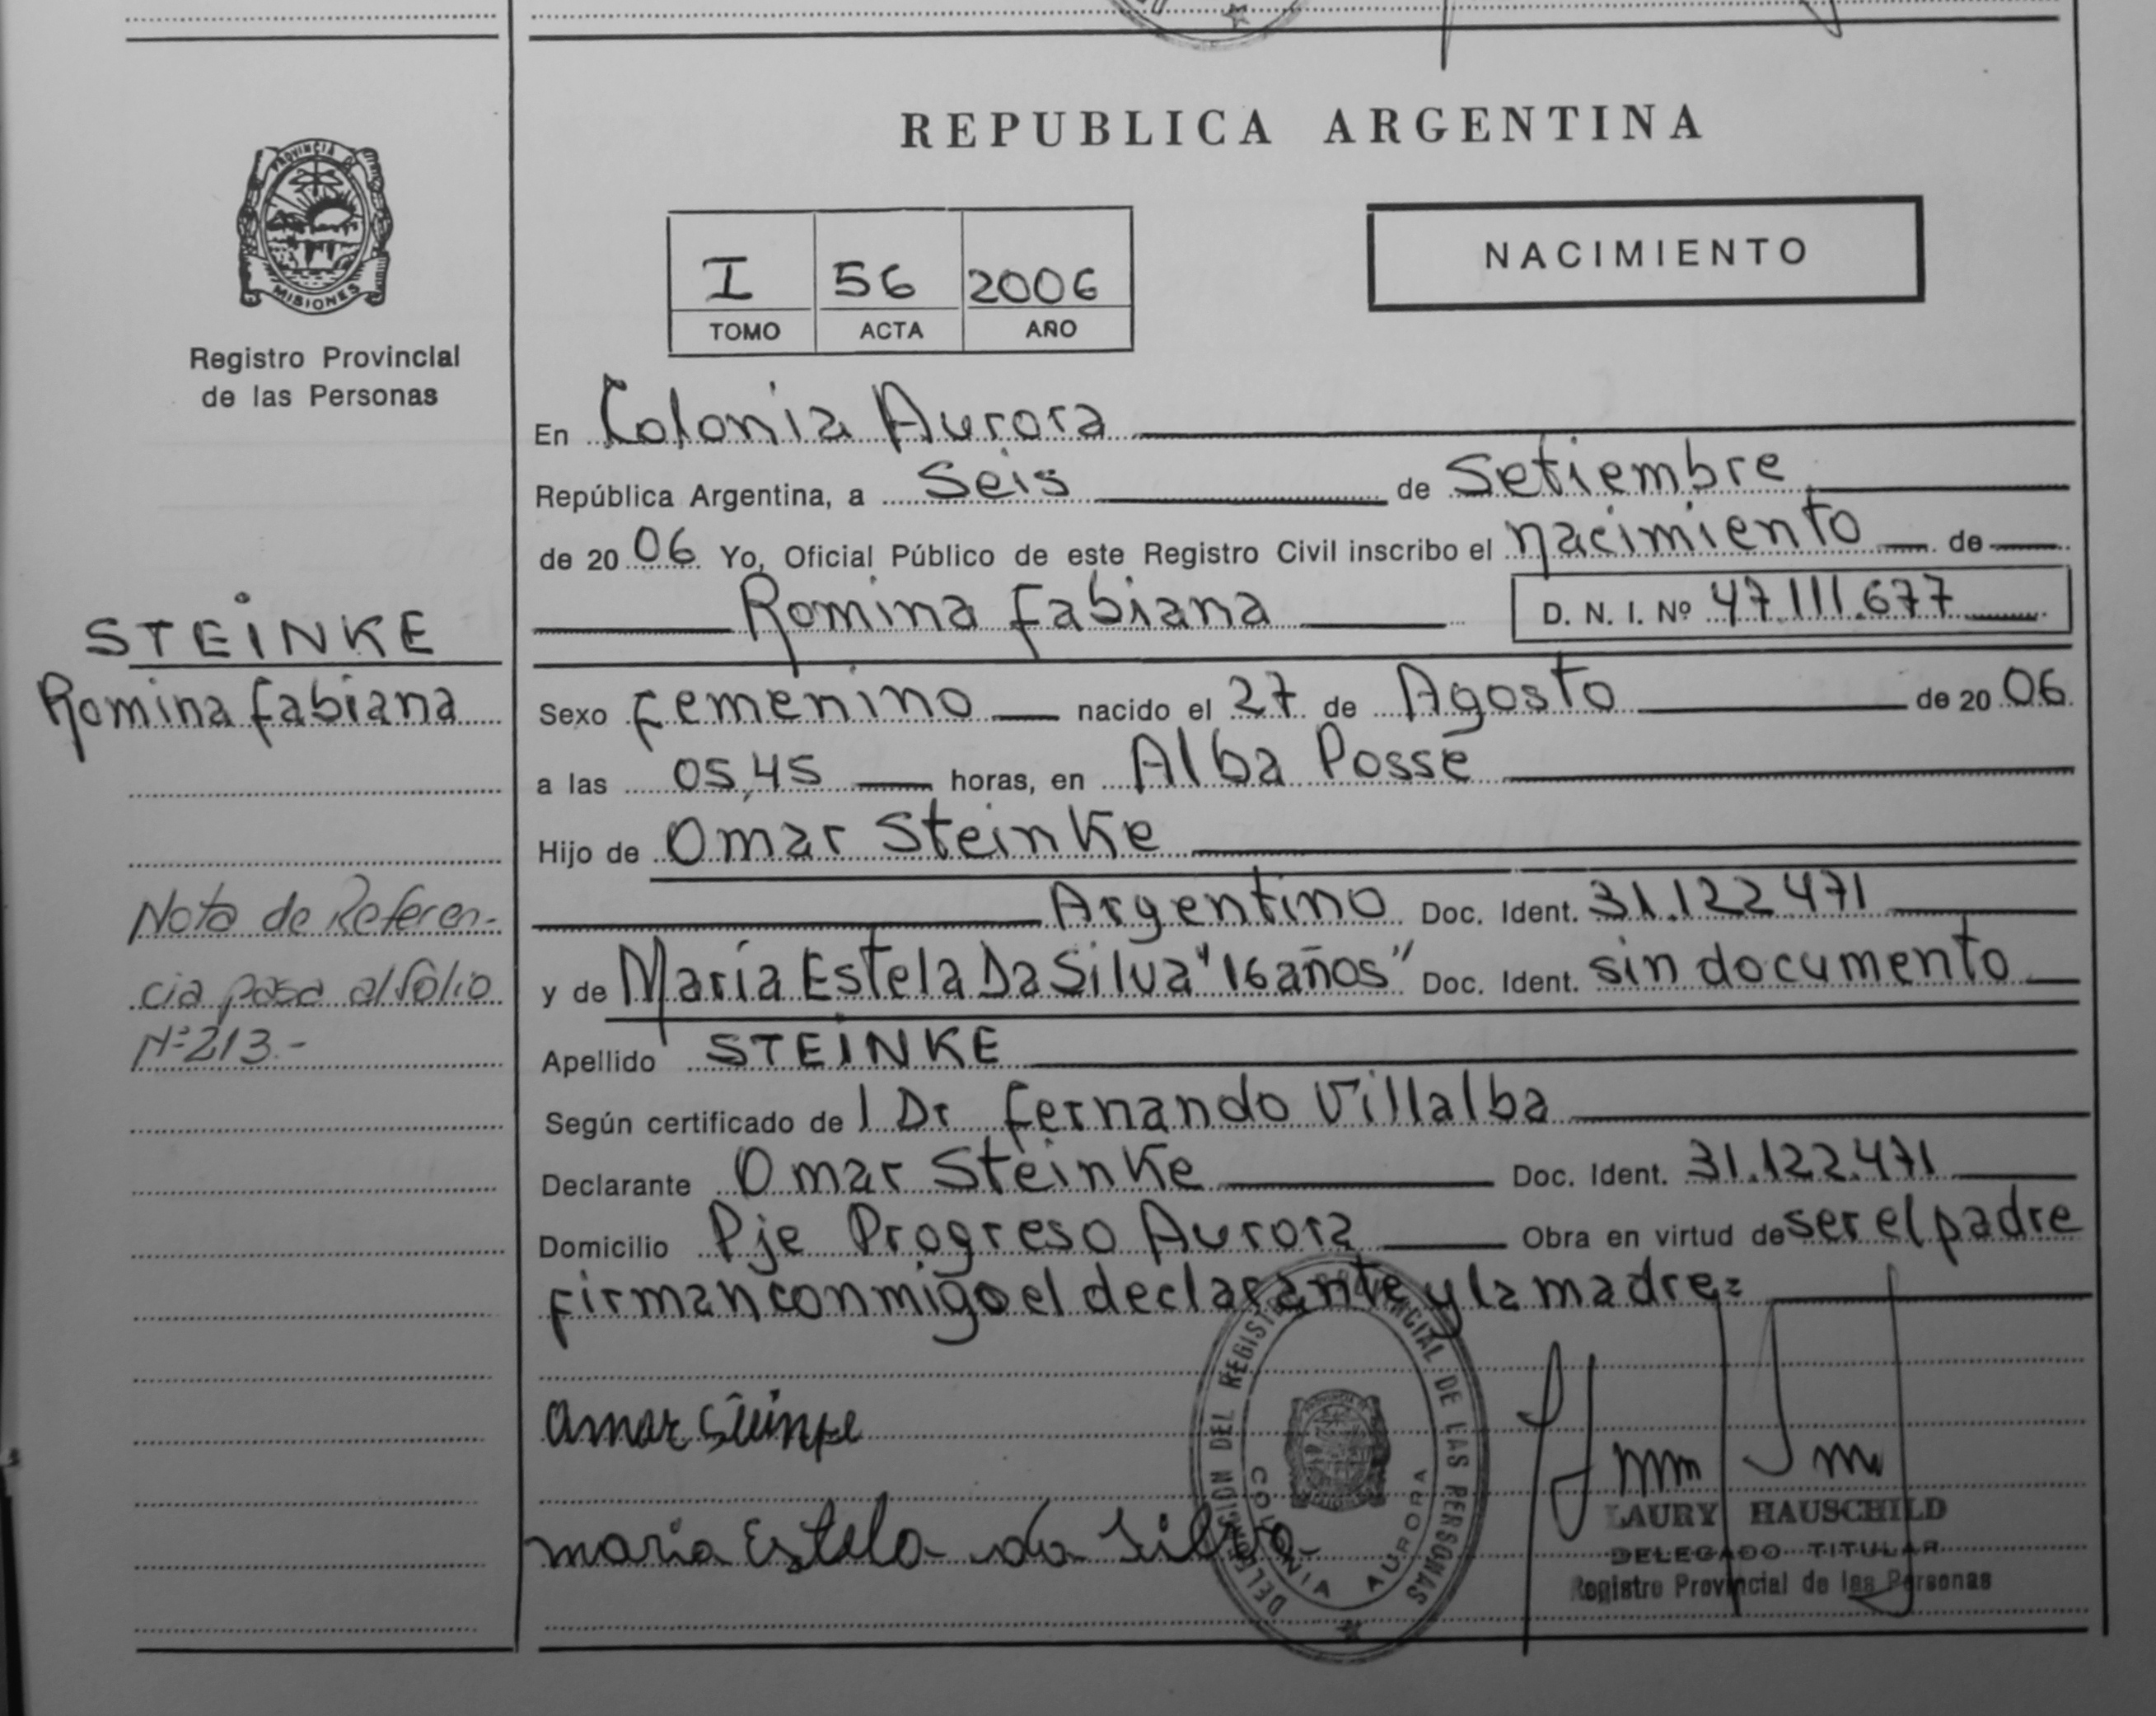 REPUBLICA ARGENTINA
PROVINCIA DE
MISIONES
Registro Provincial
de las Personas
I 56 2006
TOMO ACTA AÑO
NACIMIENTO
En Colonia Aurora
República Argentina, a Seis de Setiembre
de 20 06 Yo, Oficial Público de este Registro Civil inscribo el nacimiento de
Romina Fabiana D. N. I. Nº 47.111.677
STEINKE
Romina Fabiana
Sexo Femenino nacido el 27 de Agosto de 20 06
a las 05,45 horas, en Alba Posse
Hijo de Omar Steinke
Argentino Doc. Ident. 31.122.471
y de María Estela Da Silva "16 años" Doc. Ident. sin documento
Apellido STEINKE
Según certificado de l Dr Fernando Villalba
Declarante Omar Steinke Doc. Ident. 31.122.471
Domicilio Pje Progreso Aurora Obra en virtud de ser el padre
firman conmigo el declarante y la madre=
Nota de Referen-
cia pasa al folio
Nº 213.-
Omar Steinke
maria Estela da Silva
DELEGACION DEL REGISTRO PROVINCIAL DE LAS PERSONAS
COLONIA AURORA
LAURY HAUSCHILD
DELEGADO TITULAR
Registro Provincial de las Personas